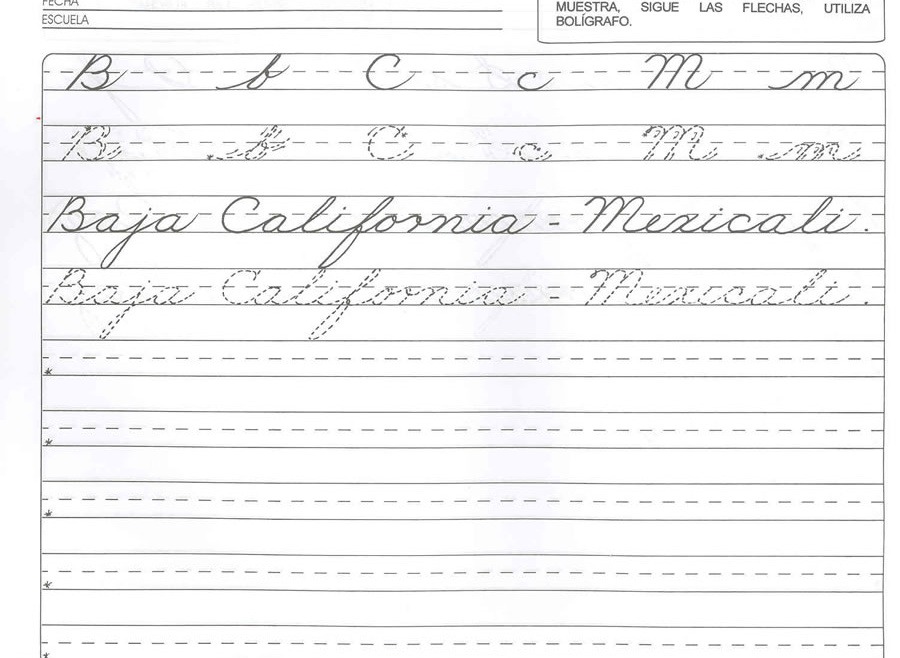 FECHA
ESCUELA
MUESTRA, SIGUE LAS FLECHAS, UTILIZA
BOLÍGRAFO.
B b C c M m
B b C c M m
Baja California - Mexicali.
Baja California - Mexicali.